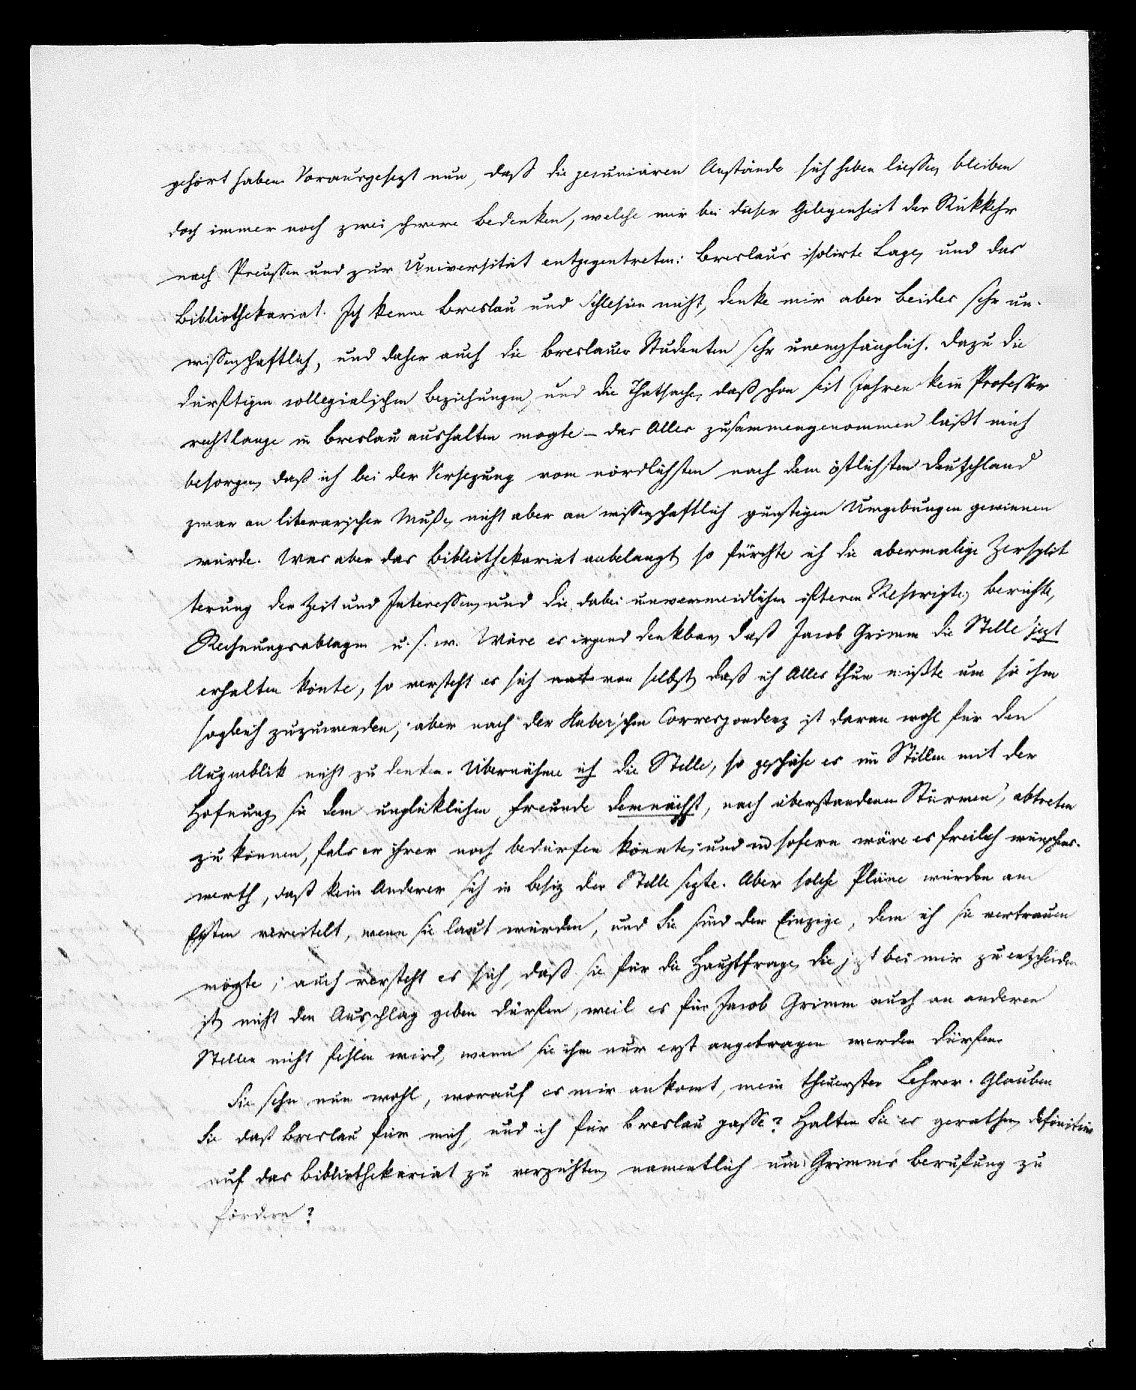 gehört haben. Vorausgesezt nun, daß die pecuniären Anstände sich heben liessen, bleiben
doch immer noch zwei schwere Bedenken, welche mir bei dieser Gelegenheit der Rükkehr
nach Preussen und zur Universität entgegentreten: Breslaus isolirte Lage, und das
Bibliothekariat. Ich kenne Breslau und Schlesien nicht, denke mir aber beides sehr un-
wissenschaftlich, und daher auch die Breslauer Studenten sehr unempfänglich. Dazu die
dürftigen collegialischen Beziehungen, und die Thatsache, daß schon seit Jahren kein Professor
recht lange in Breslau aushalten mogte – das Alles zusammengenommen läßt mich
besorgen, daß ich bei der Versezung vom nördlichsten nach dem östlichsten Deutschland
zwar an literarischer Muße, nicht aber an wissenschaftlich günstigen Umgebungen gewinnen
würde. Was aber das Bibliothekariat anbelangt, so fürchte ich die abermalige Zersplit
terung der Zeit und Interessen, und die dabei unvermeidlichen öfteren Rescripte, Berichte,
Rechnungsablagen u. s. w. Wäre es irgend denkbar, daß Jacob Grimm die Stelle jezt
erhalten könte, so versteht es sich von selbst, daß ich Alles thun müßte um sie ihm
sogleich zuzuwenden; aber nach der Huber'schen Correspondenz ist daran wohl für den
Augenblik nicht zu denken. Übernähme ich die Stelle, so geschähe es im Stillen mit der
Hofnung, sie dem unglüklichen Freunde demnächst, nach überstandenen Stürmen, abtreten
zu können, fals er ihrer noch bedürfen könnte; und in sofern wäre es freilich wünschens-
werth, daß kein Anderer sich in Besiz der Stelle sezte. Aber solche Pläne würden am
Ersten vereitelt, wenn sie laut würden, und Sie sind der Einzige, dem ich sie vertrauen
mögte; auch versteht es sich, daß sie für die Hauptfrage, die jezt bei mir zu entscheiden
ist, nicht den Ausschlag geben dürfen, weil es für Jacob Grimm auch an anderen
Stellen nicht fehlen wird, wenn sie ihm nur erst angetragen werden dürfen.
Sie sehn nun wohl, worauf es mir ankomt, mein theuerster Lehrer. Glauben
Sie daß Breslau für mich, und ich für Breslau passe? Halten Sie es gerathen, definitiv
auf das Bibliothekariat zu verzichten, namentlich um Grimms Berufung zu
fördern?